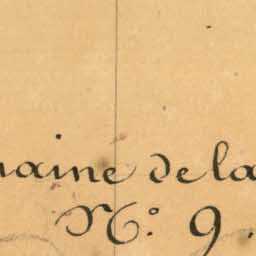 maine de la
N.º 9.